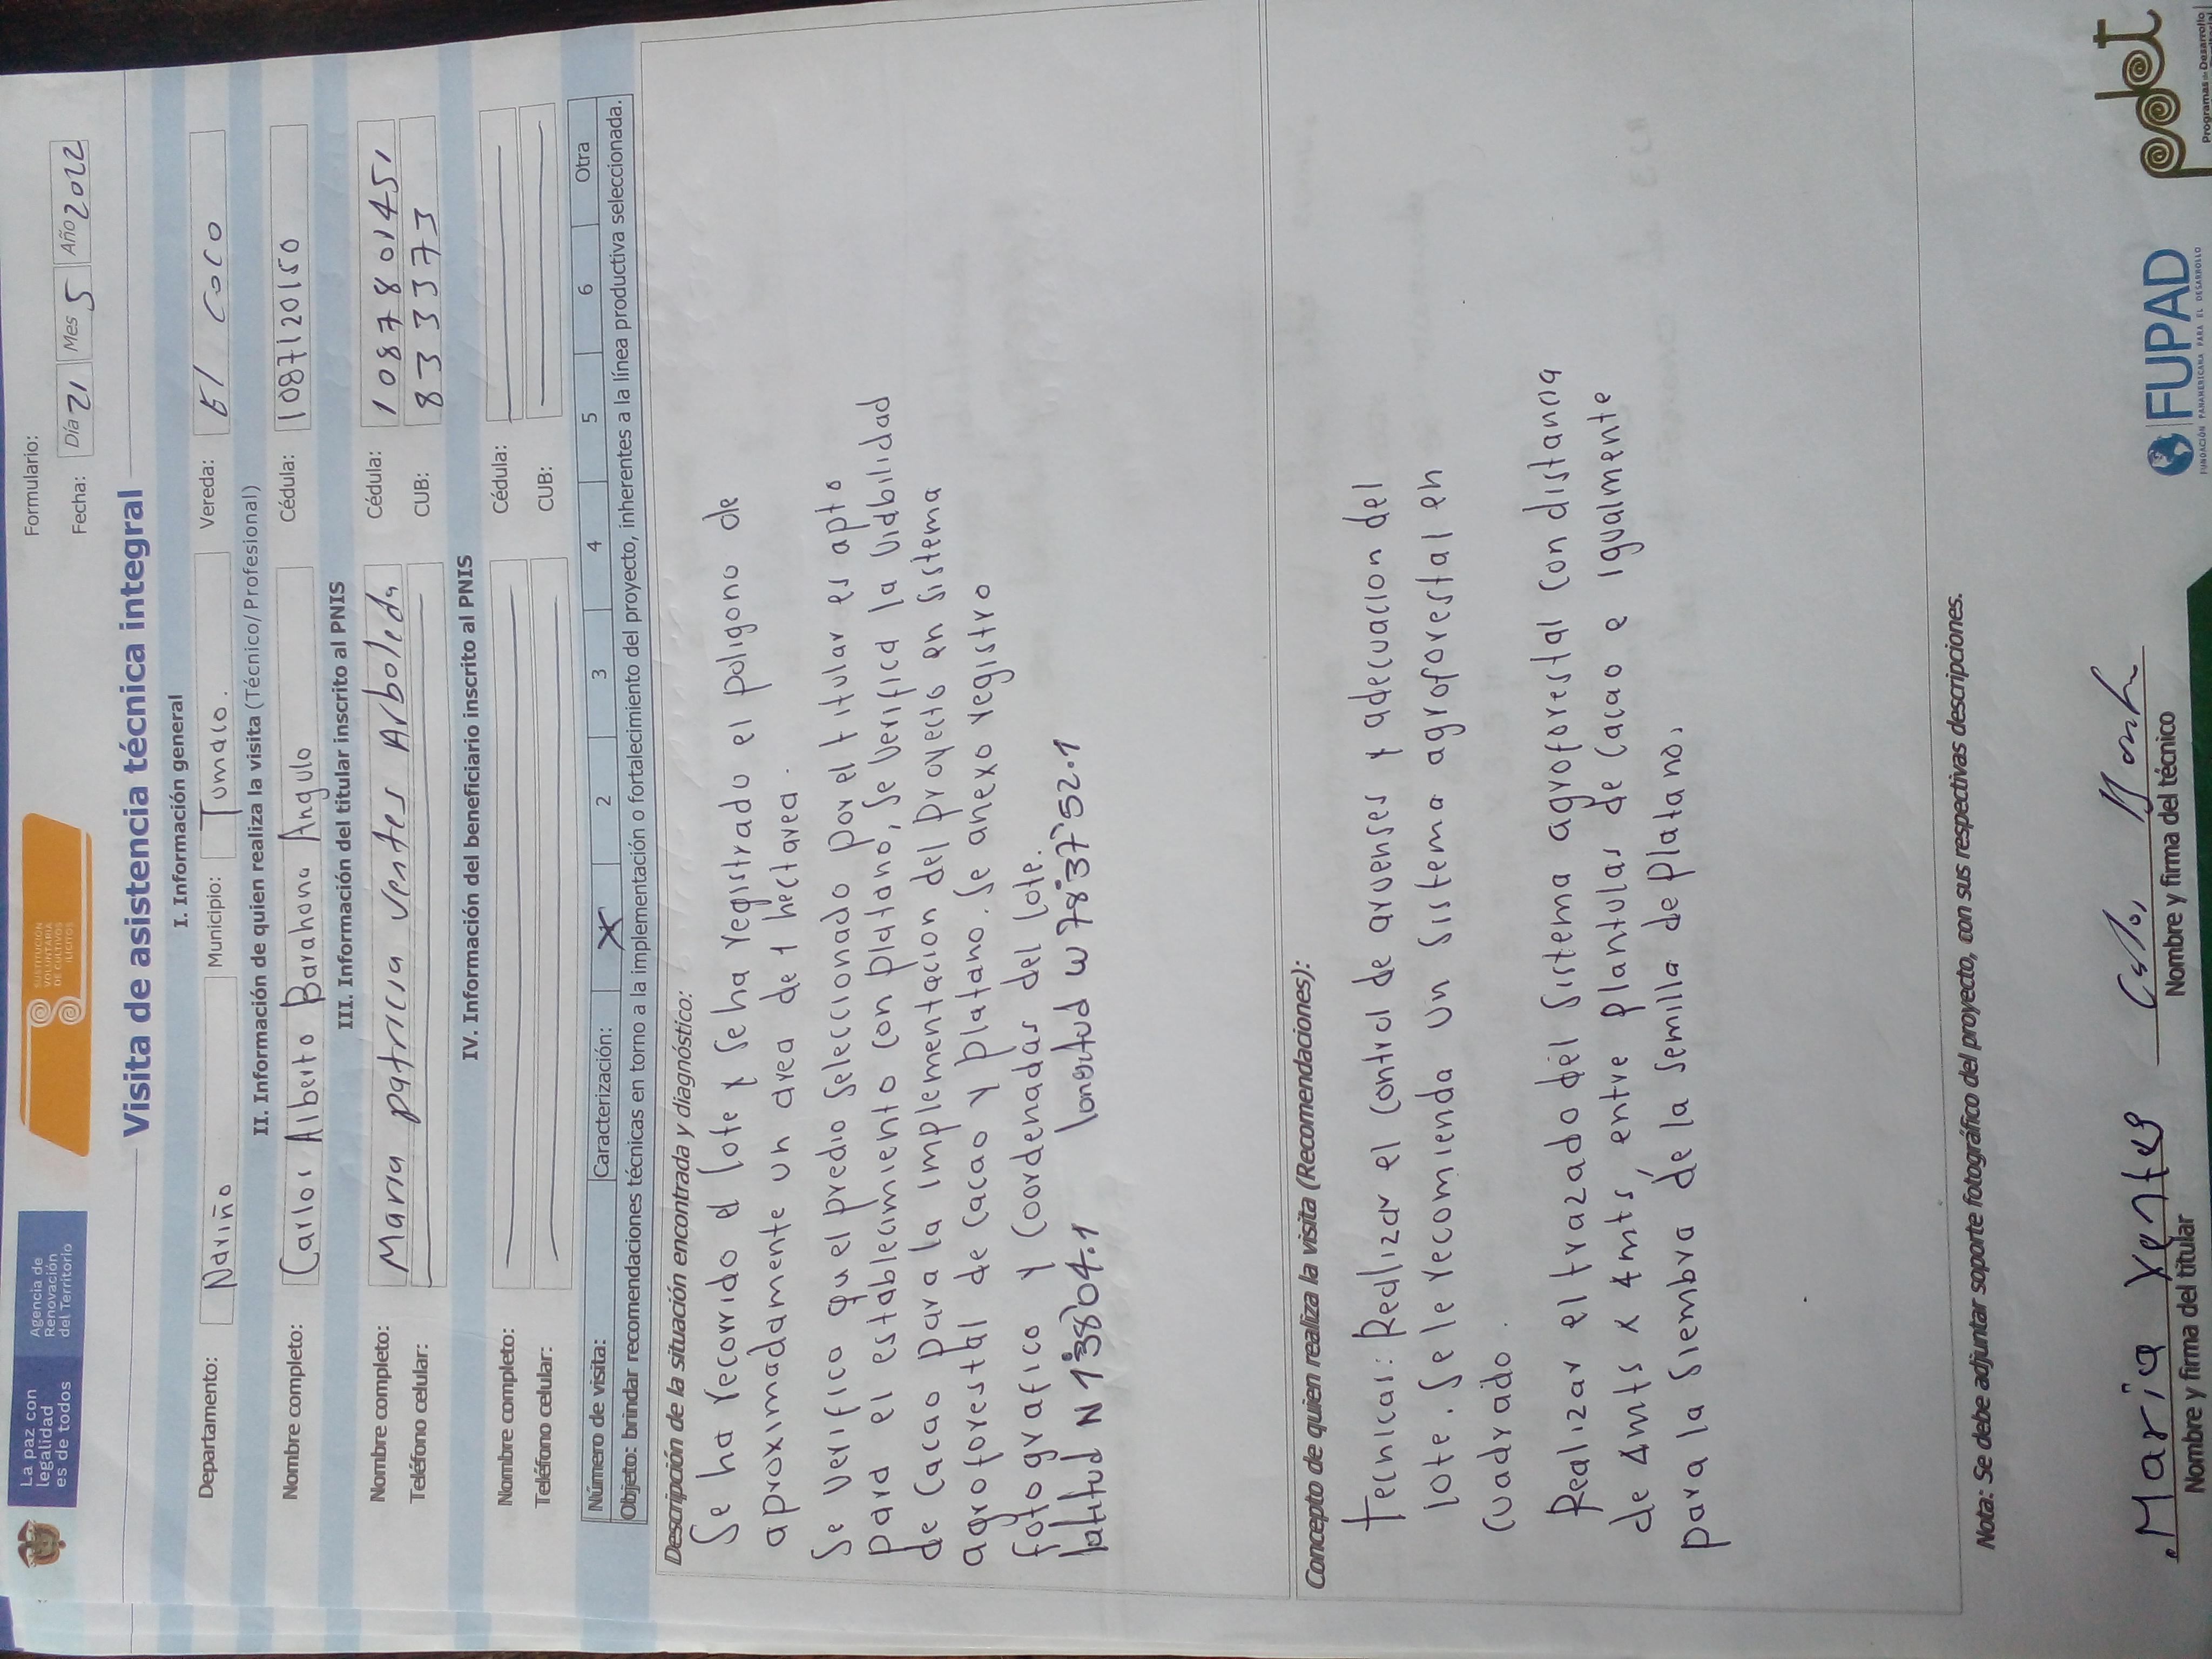 La paz con
legalidad
es de todos
Agencia de
Renovación
del Territorio
SUSTITUCIÓN
VOLUNTARIA
DE CULTIVOS
ILÍCITOS
Formulario:
Fecha: Día 21 Mes 5 Año 2022
Visita de asistencia técnica integral
I. Información general
Departamento: Nariño Municipio: Tumaco. Vereda: El Coco
II. Información de quien realiza la visita (Técnico/Profesional)
Nombre completo: Carlos Alberto Barahona Angulo Cédula: 1087120150
III. Información del titular inscrito al PNIS
Nombre completo: Maria patricia ventes Arboleda Cédula: 10877801451
Teléfono celular: CUB: 8333373
IV. Información del beneficiario inscrito al PNIS
Nombre completo: Cédula:
Teléfono celular: CUB:
Número de visita: Caracterización: X 2 3 4 5 6 Otra
Objeto: brindar recomendaciones técnicas en torno a la implementación o fortalecimiento del proyecto, inherentes a la línea productiva seleccionada.
Descripción de la situación encontrada y diagnóstico:
Se ha recorrido el lote y se ha registrado el poligono de
aproximadamente un area de 1 hectarea.
Se verifico qu el predio seleccionado por el titular es apto
para el establecimiento con platano, se verifica la viabilidad
de cacao para la implementacion del proyecto en sistema
agroforestal de cacao y platano. se anexo registro
fotografico y coordenadas del lote.
latitud N 1°38'04.1 longitud w 78°37'52.1
Concepto de quien realiza la visita (Recomendaciones):
tecnicas: Realizar el control de arvenses y adecuacion del
lote. se le recomienda un sistema agroforestal en
cuadrado.
Realizar el trazado del sistema agroforestal con distancia
de 4mts x 4mts entre plantulas de cacao e igualmente
para la siembra de la semilla de platano.
Nota: Se debe adjuntar soporte fotográfico del proyecto, con sus respectivas descripciones.
Maria ventes
Nombre y firma del titular
Nombre y firma del técnico
FUPAD
FUNDACIÓN PANAMERICANA PARA EL DESARROLLO
Pdet
Programas de Desarrollo